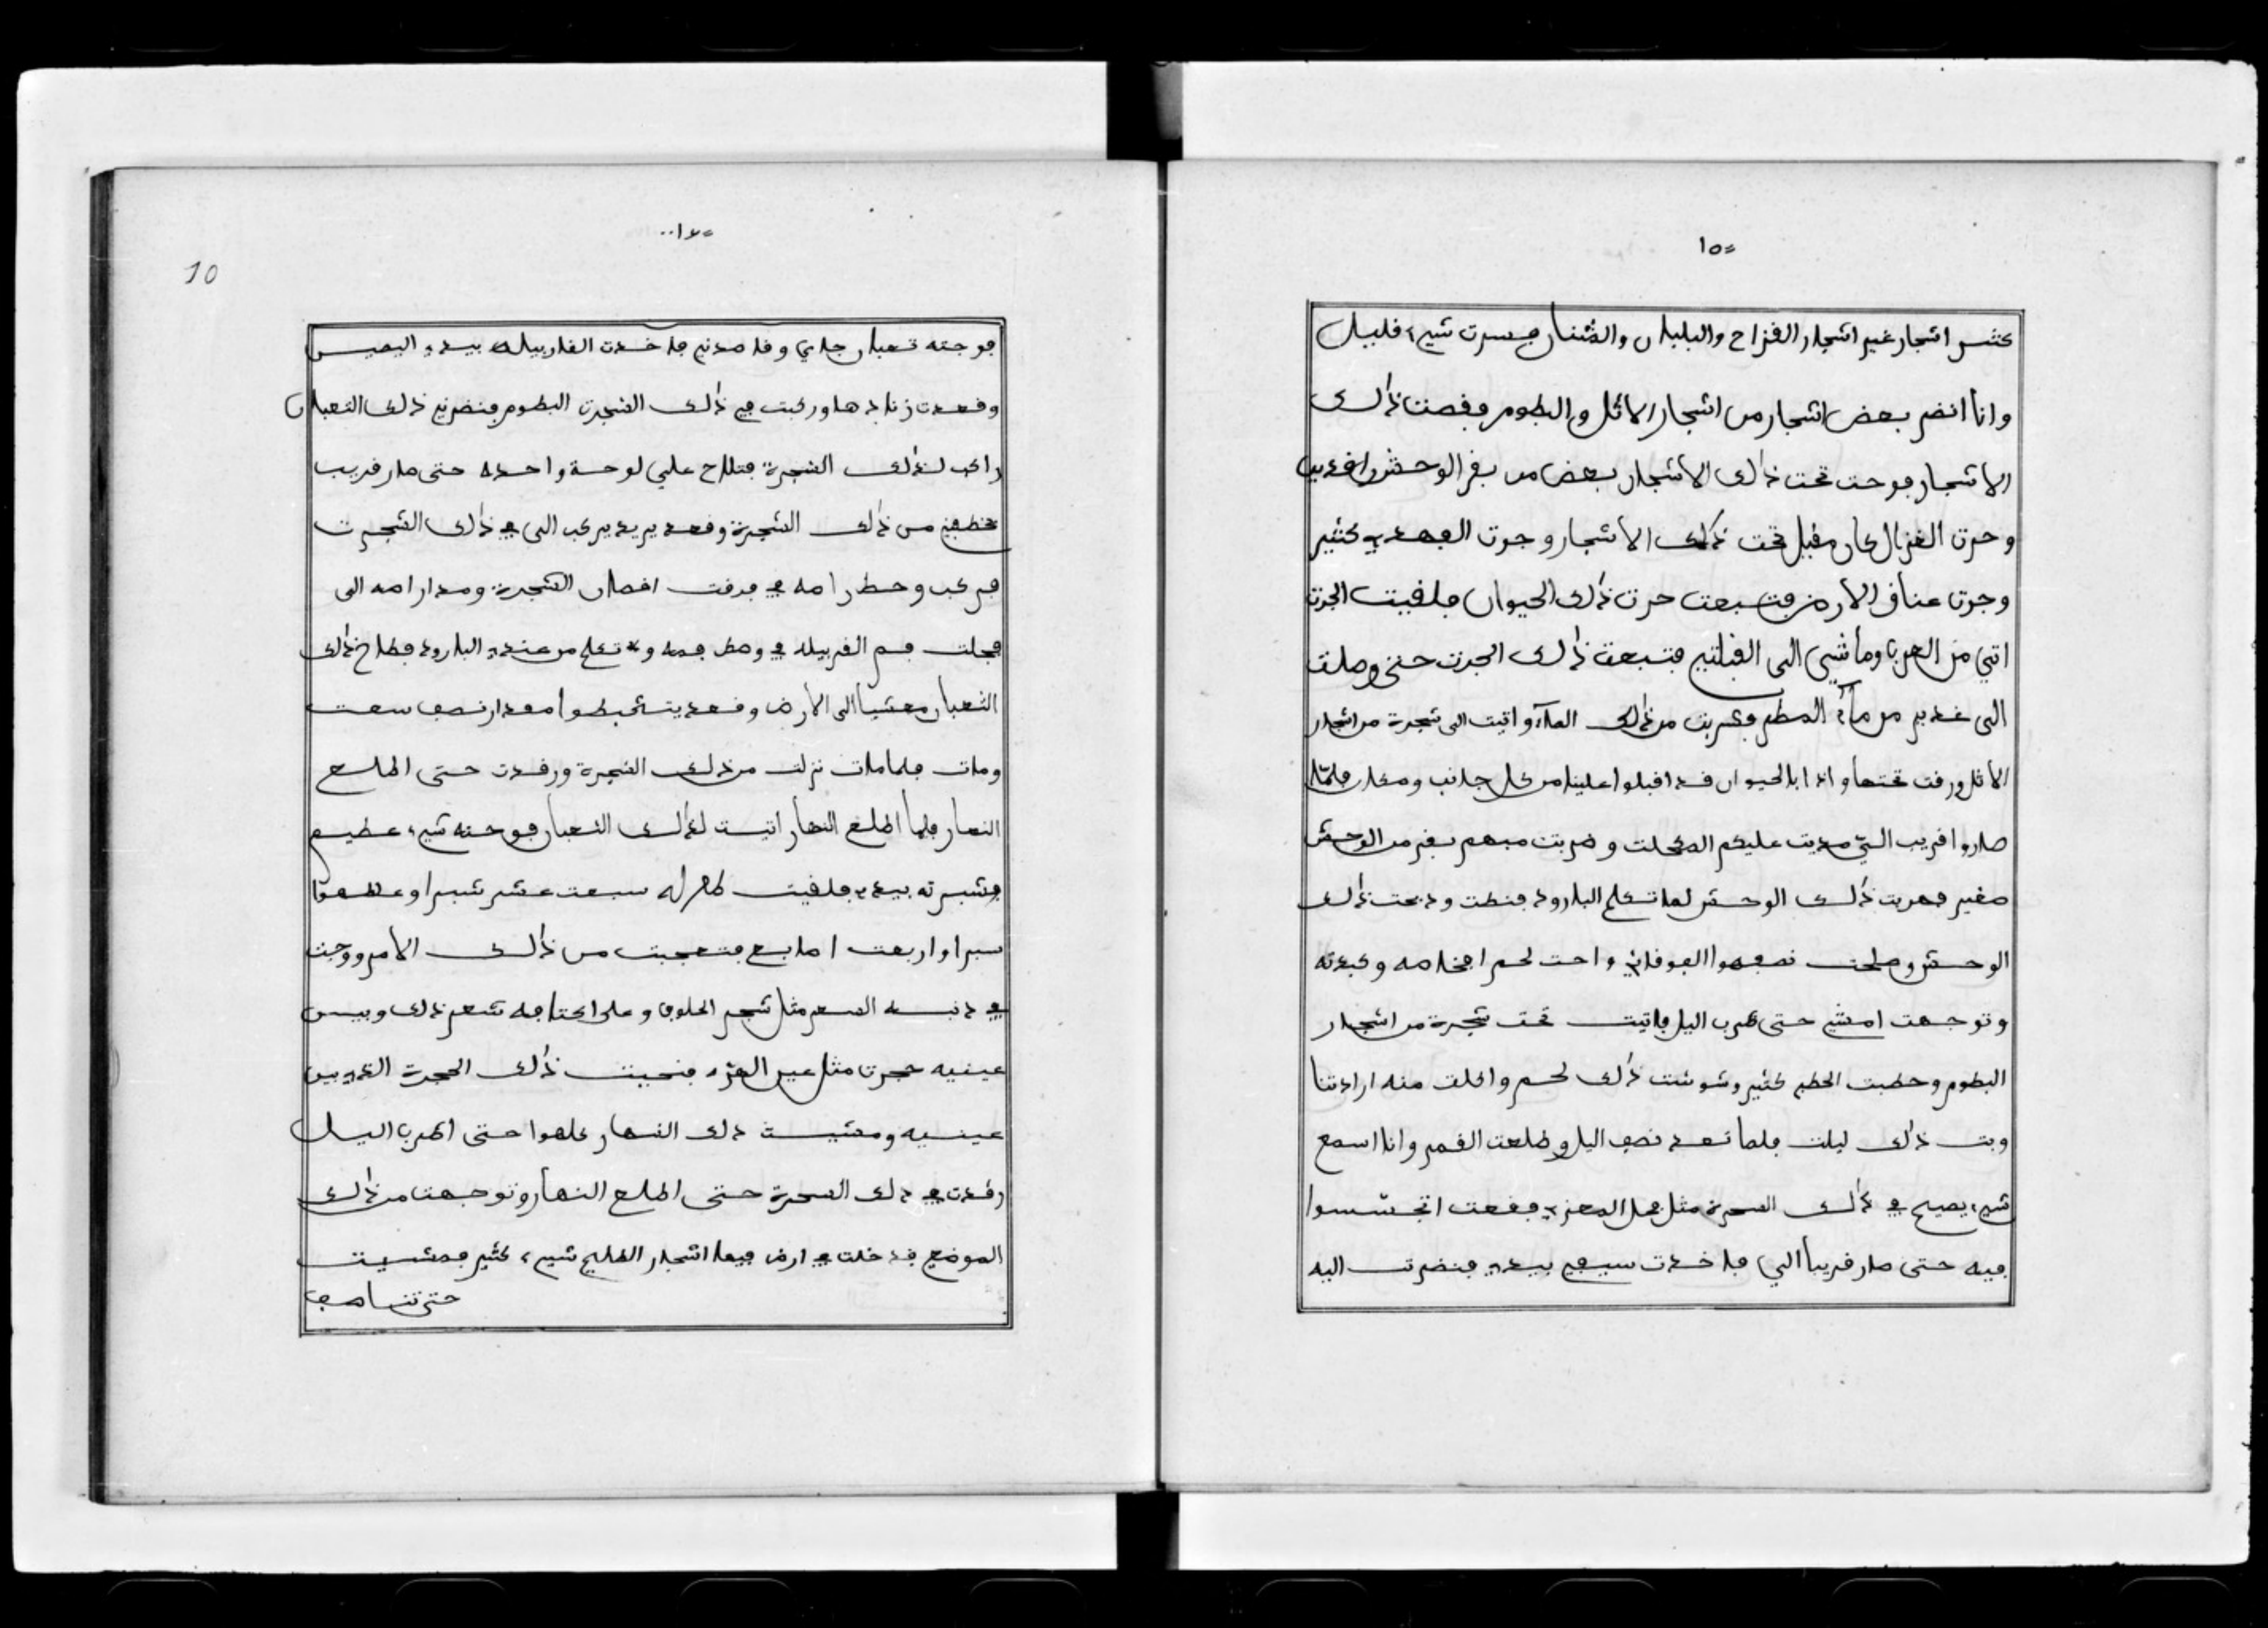 ١٥=
كثير اشجار غير اشجار القزاح والبلبان والقنان فسرت شيء قليل
وانا انضر بعض اشجار من اشجار الاثل والبطوم وفصت ذالك
الاشجار فوجت تحت ذالك الاشجار بعض من بقر الوحش راقدين
وجرت الغزال كان مقيل تحت ذالك الاشجار وجرت الفهد كثير
وجرت عناق الارض فتسبعت جرت ذالك الحيوان فلقيت الجرت
اتي من الغرب وماشي الى القبلتي فتبعت ذالك الجرت حتى وصلت
الى غدير من ماء المطر وشربت من ذالك الماء واتيت الى شجرة من اشجار
الاثل ورقت تحتها واذا بالحيوان قد اقبلوا علينا من كل جانب ومكان فلما
صاروا قريب التي مديت عليكم المكحلت وضربت فيهم بقر من الوحش
صغير فهربت ذالك الوحش لما تكلم البارود فنطت ودبحت ذالك
الوحش وصلحت نصفهوا الفوقاني واخت لحم افخاضه وكبدته
وتوجهت امشي حتى قرب اليل فاتيت تحت شجرة من اشجار
البطوم وحطبت الحطب كثير وشوشت ذالك لحم واكلت منه ارادتنا
وبت ذالك ليلت فلما تعد نصف اليل وطلعت القمر وانا اسمع
شيء يصيح في ذالك الشجرة مثل فحل المعز فقعت اتجسسوا
فيه حتى صار قريبا الي فاخدت سيفي بيدي فنضرت اليه
=١٦..
10
فوجته تعبان جاي وقاصدني فاخدت القاربيله بيدي اليمين
وقعدت زنادها وركبت في ذالك الشجرت البطوم فنضرني ذالك التعبان
راكب لذالك الشجرة فتلاح علي لوحة واحده حتى صار قريب
يخطفني من ذالك الشجرة وقعد يريد يركب الى في ذالك الشجرت
فركب وحط راسه في فرقت اغصان الشجرة ومدا راسه الى
فجلت فم القربيله في وسط فمه وتكلم من عنده البارود فطاح ذالك
الثعبان مغشيا الى الارض وقعد يتشخبطوا مقدار نصف سعت
ومات فلما مات نزلت من ذلك الشجرة ورقدت حتى اطلع
النهار فلما اطلع النهار اتيت لذالك الثعبان فوجته شيء عظيم
فشبرته بيدي فلقيت طوله سبعت عشر شبرا وعظمه
شبرا واربعت اصابع فتعجبت من ذالك الامر ووجت
في دنبه الشعر مثل شعر الحلوف وعلى اكتافه شعر ذلك وبيس
عينيه حجرت مثل عين الهر فنحيت ذالك الحجرة الذي بين
عينيه ومشيت ذلك النهار كلهوا حتى اقرب اليل
رقدت في ذلك الشجرة حتى اطلع النهار وتوجهت من ذالك
الموضع فدخلت في ارض فيها اشجار الطلح شيء كثير فمشيت
حتى تناصف